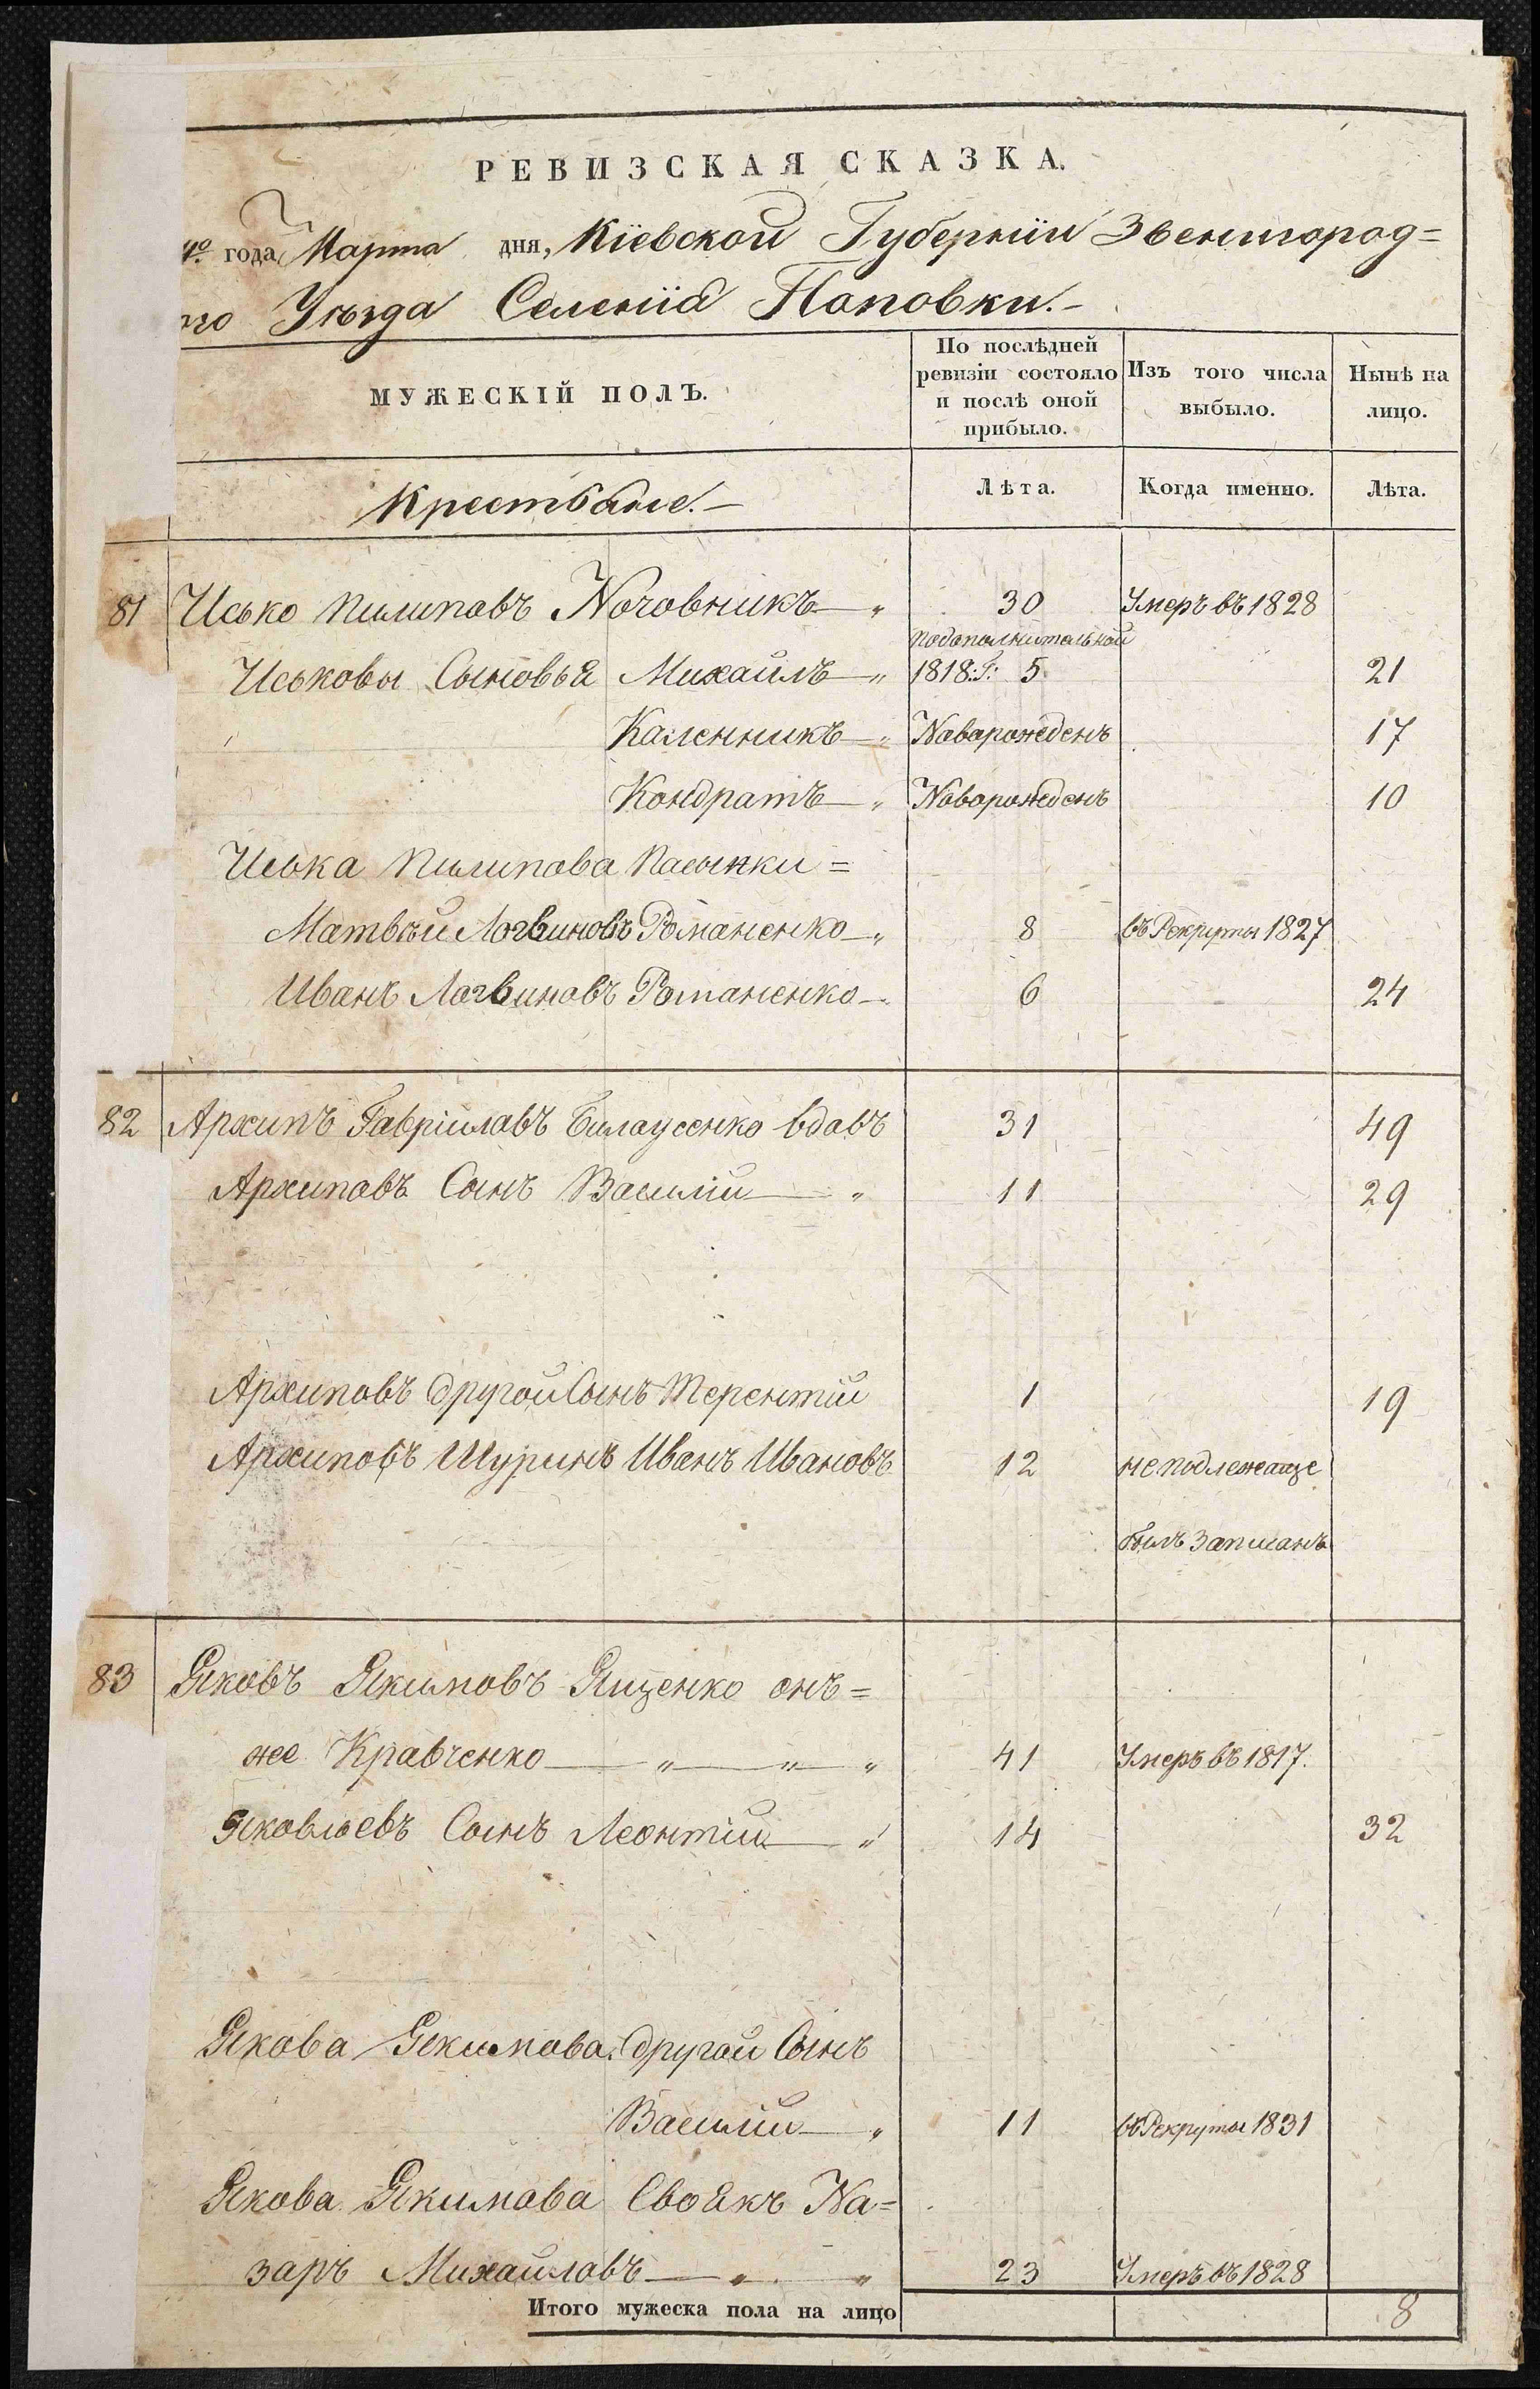 РЕВИЗСКАЯ СКАЗКА.
4º года Марта дня, Кіевской Губерніи Звенигород=
ого Уѣзда Селенія Поповки.-
МУЖЕСКІЙ ПОЛЪ.
По послѣдней ревизіи состояло и послѣ оной прибыло.
Изъ того числа выбыло.
Нынѣ на лицо.
Крестьяне.-
Лѣта.
Когда именно.
Лѣта.
81 Исько Пилиповъ Ночовникъ 30 Умеръ въ 1828
подополнительной
Иськовы Сыновья Михайлъ 1818: г: 5 21
Каленникъ Новорожденъ 17
Кондратъ Новорожденъ 10
Иська Пилипова Пасынки =
Матвѣй Логвиновъ Романенко 8 въ Рекруты 1827
Иванъ Логвиновъ Романенко 6 24
82 Архипъ Гавріиловъ Билаусенко вдовъ 31 49
Архиповъ Сынъ Василій 11 29
Архиповъ другой Сынъ Терентій 1 19
Архиповъ Шуринъ Иванъ Ивановъ 12 неподлежаще
былъ записанъ
83 Яковъ Якимовъ Ященко онъ=
же Кравченко 41 Умеръ въ 1817.
Яковлевъ Сынъ Леонтій 14 32
Якова Якимова другой Сынъ
Василій 11 въ Рекруты 1831
Якова Якимова Своякъ На=
заръ Михайловъ 23 Умеръ въ 1828
Итого мужеска пола на лицо 8